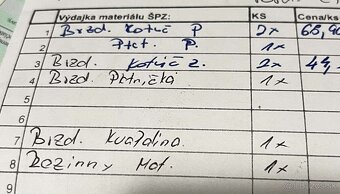 Výdajka materiálu ŠPZ: KS Cena/ks
1 Brzd. Kotúč P 2x 68,90
Ptct. P. 1x
3 Brzd. Kotúč z. 2x 44,
4 Brzd. Ptnička 1x
7 Brzd. Kvapalina 1x
8 Rozinny Mat. 1x
9